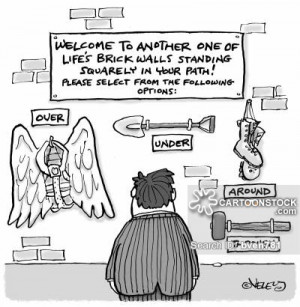 WELCOME TO ANOTHER ONE OF
LIFE'S BRICK WALLS STANDING
SQUARELY IN YOUR PATH!
PLEASE SELECT FROM THE FOLLOWING
OPTIONS:
OVER
UNDER
AROUND
CARTOONSTOCK
.com
Search ID:
©VELEY